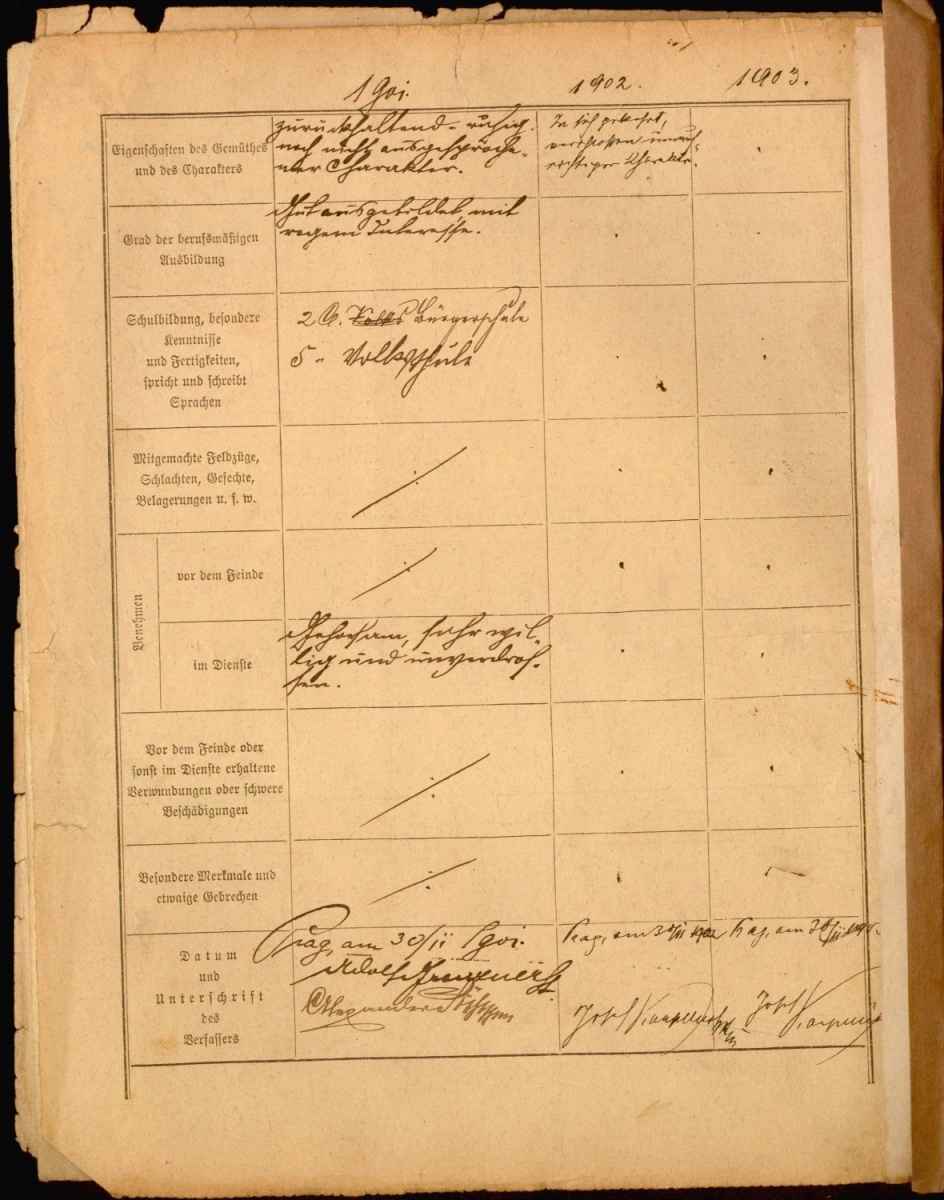 1901. 1902. 1903.
Eigenschaften des Gemüthes
und des Charakters
zurückhaltend - ruhig.
noch nicht ausgesproche-
ner Charakter.
In sich gekehrt,
verschlossen unauf-
richtiger Charakter.
Grad der berufsmäßigen
Ausbildung
Gut ausgebildet, mit
regem Interesse.
Schulbildung, besondere
Kenntnisse
und Fertigkeiten,
spricht und schreibt
Sprachen
2 Cl. Volks Bürgerschule
5 " Volksschule
Mitgemachte Feldzüge,
Schlachten, Gefechte,
Belagerungen u. s. w.
Benehmen
vor dem Feinde
im Dienste
Gehorsam, sehr wil-
lig und unverdros-
sen.
Vor dem Feinde oder
sonst im Dienste erhaltene
Verwundungen oder schwere
Beschädigungen
Besondere Merkmale und
etwaige Gebrechen
Datum
und
Unterschrift
des
Verfassers
Prag, am 30/11 1901.
Adolf
Alexander
Prag, am 30/11 1902
Josef
Prag, am 30/11
Josef